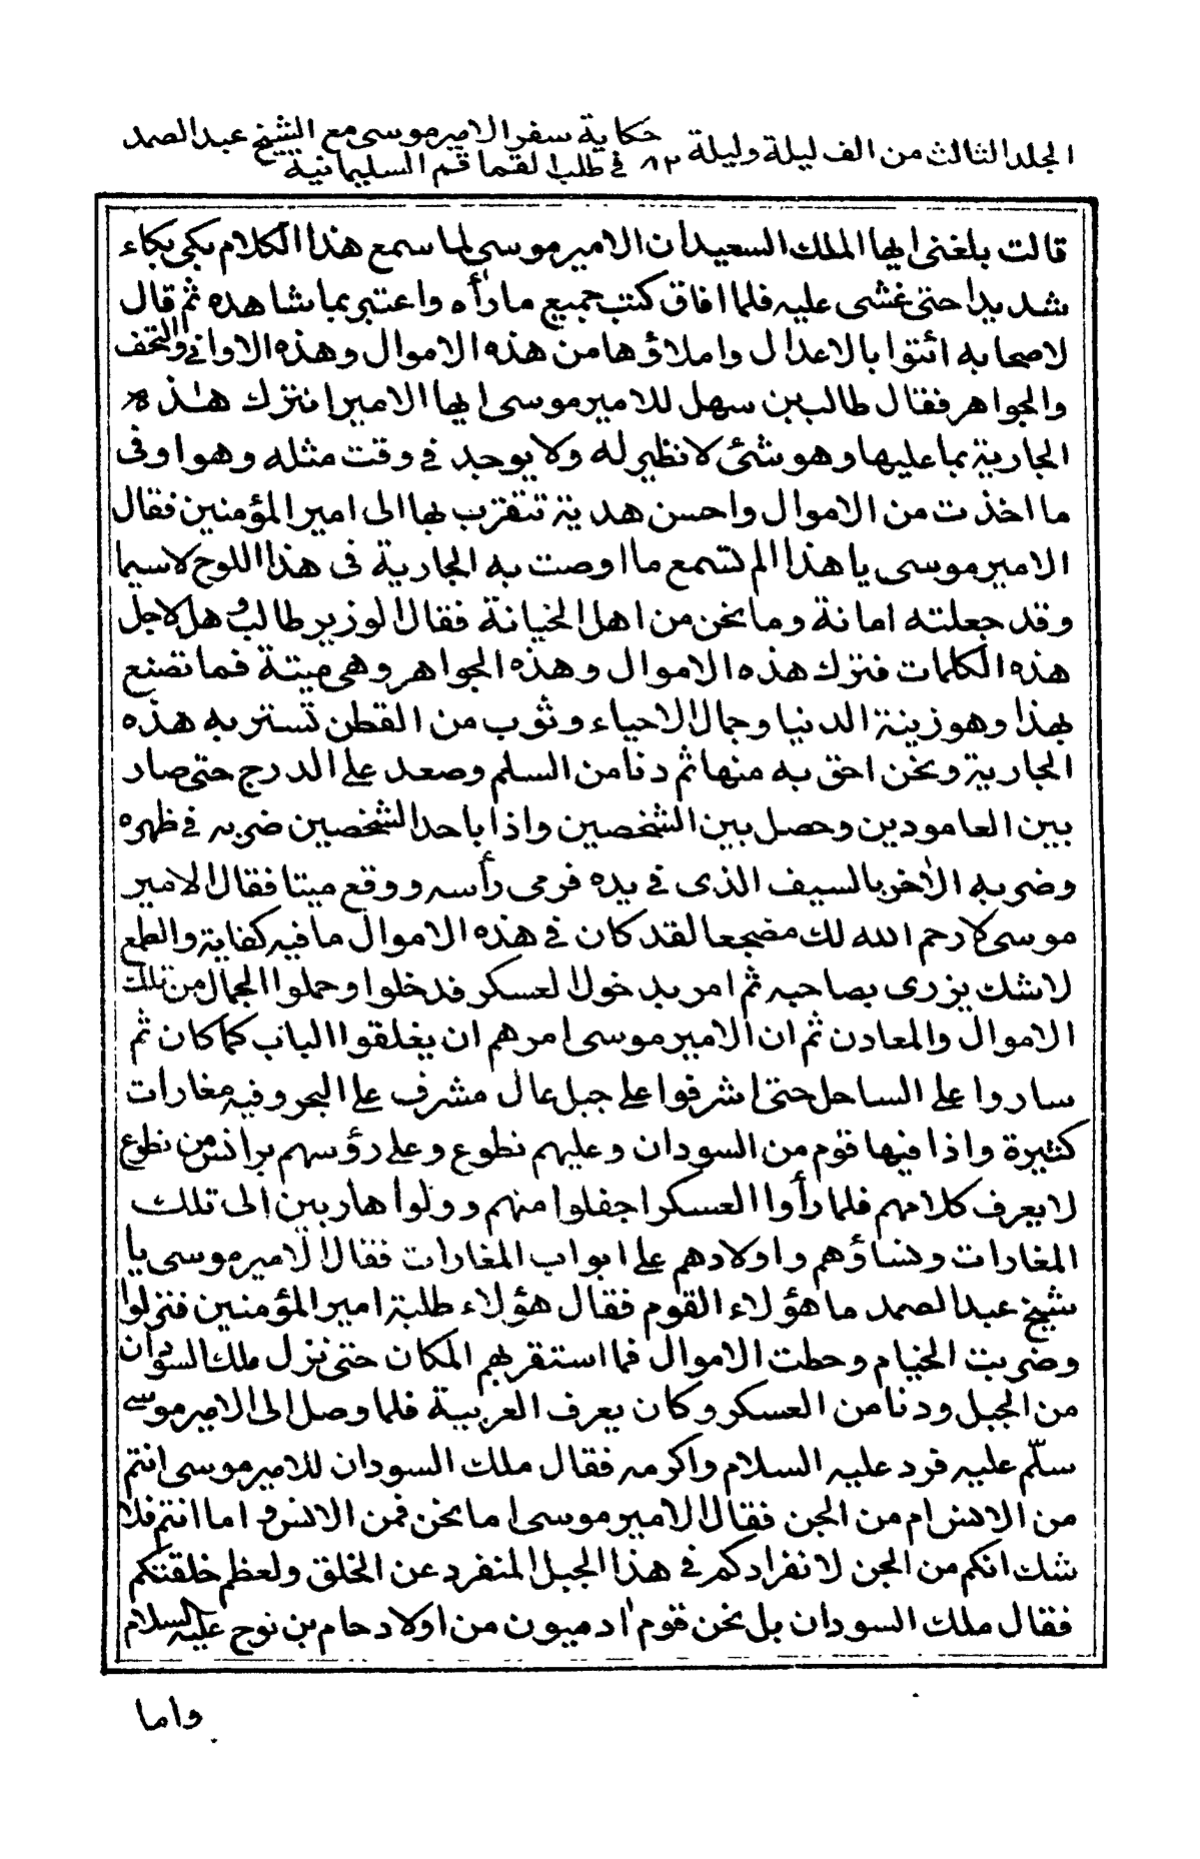 الجلد الثالث من الف ليلة وليلة ٨٢ حكاية سفر الامير موسى مع الشيخ عبد الصمد
في طلب القماقم السليمانية
قالت بلغنى ايها الملك السعيد ان الامير موسى لما سمع هذا الكلام بكى بكاء
شديدا حتى غشى عليه فلما افاق كتب جميع ما رأه واعتبر بما شاهده ثم قال
لاصحابه ائتوا بالاعدال واملاؤها من هذه الاموال وهذه الاوانى والتحف
والجواهر فقال طالب بن سهل للامير موسى ايها الامير انترك هذه
الجارية بما عليها وهو شئ لا نظير له ولا يوجد في وقت مثله وهو اوفى
ما اخذت من الاموال واحسن هدية تتقرب بها الى امير المؤمنين فقال
الامير موسى يا هذا الم تسمع ما اوصت به الجارية فى هذا اللوح لاسيما
وقد جعلته امانة وما نحن من اهل الخيانة فقال الوزير طالب وهل لاجل
هذه الكلمات فنترك هذه الاموال وهذه الجواهر وهى ميتة فما تصنع
بهذا وهو زينة الدنيا وجمال الاحياء وثوب من القطن تستتر به هذه
الجارية ونحن احق به منها ثم دنا من السلم وصعد على الدرج حتى صار
بين العامودين وحصل بين الشخصين واذا باحد الشخصين ضربه في ظهره
وضربه الاخر بالسيف الذى في يده فرمى رأسه ووقع ميتا فقال الامير
موسى لا رحم الله لك مضجعا لقد كان في هذه الاموال ما فيه كفاية والطمع
لا شك يزرى بصاحبه ثم امر بدخول العسكر فدخلوا وحملوا الجمال من تلك
الاموال والمعادن ثم ان الامير موسى امرهم ان يغلقوا الباب كما كان ثم
ساروا على الساحل حتى اشرفوا على جبل عال مشرف على البحر وفيه مغارات
كثيرة واذا فيها قوم من السودان وعليهم نطوع وعلى رؤسهم برانس من نطوع
لا يعرف كلامهم فلما رأوا العسكر اجفلوا منهم وولوا هاربين الى تلك
المغارات ونساؤهم واولادهم على ابواب المغارات فقال الامير موسى يا
شيخ عبد الصمد ما هؤلاء القوم فقال هؤلاء طلبة امير المؤمنين فنزلوا
وضربت الخيام وحطت الاموال فما استقر بهم المكان حتى نزل ملك السودان
من الجبل ودنا من العسكر وكان يعرف العربية فلما وصل الى الامير موسى
سلّم عليه فرد عليه السلام واكرمه فقال ملك السودان للامير موسى انتم
من الانس ام من الجن فقال الامير موسى اما نحن فمن الانس و اما انتم فلا
شك انكم من الجن لانفرادكم في هذا الجبل المنفرد عن الخلق ولعظم خلقتكم
فقال ملك السودان بل نحن قوم ادميون من اولاد حام بن نوح عليه السلام
واما